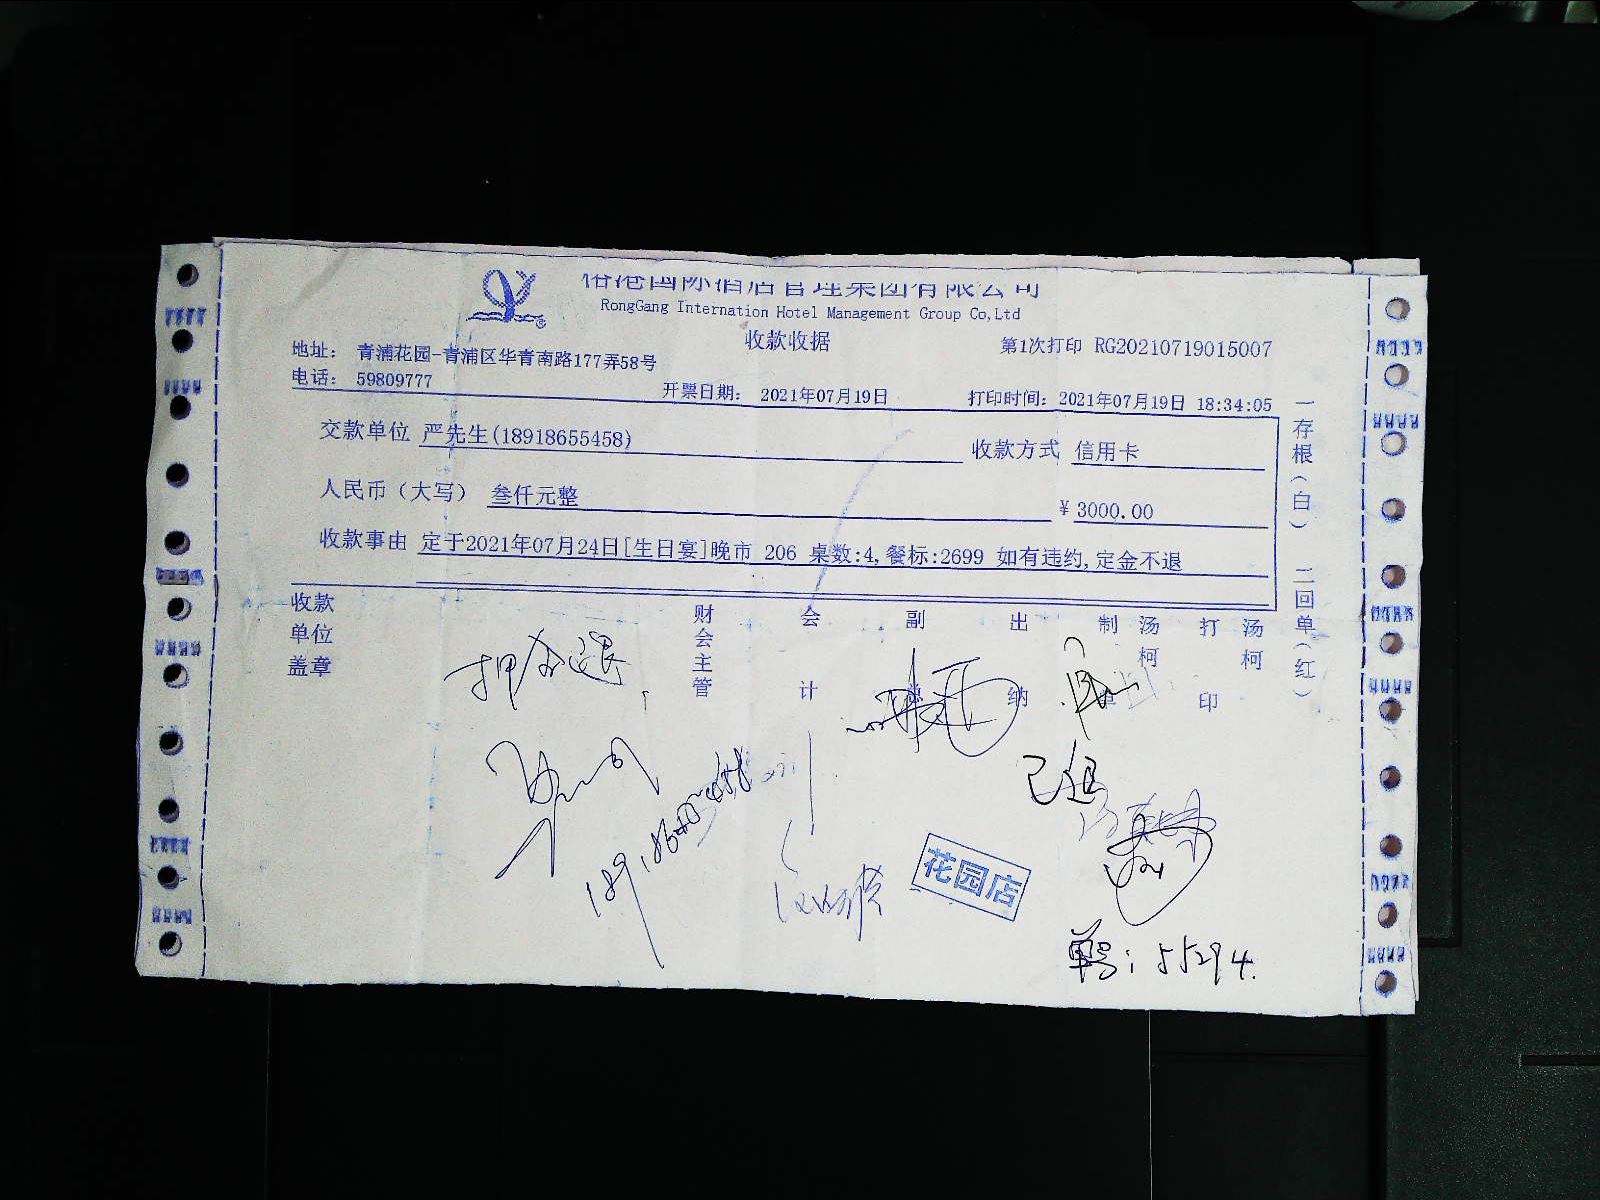 国际酒店管理集团有限公司
RongGang Internation Hotel Management Group Co,Ltd
收款收据
第1次打印 RG20210719015007
地址： 青浦花园-青浦区华青南路177弄58号
电话： 59809777
开票日期： 2021年07月19日
打印时间：2021年07月19日 18:34:05
交款单位 严先生(18918655458)
收款方式 信用卡
人民币（大写） 叁仟元整
¥ 3000.00
收款事由 定于2021年07月24日[生日宴]晚市 206 桌数:4,餐标:2699 如有违约,定金不退
一存根（白） 二回单（红）
收款单位盖章
财会主管
会计
副
出纳
制单 汤柯
打印 汤柯
已退
花园店
单号：55294.